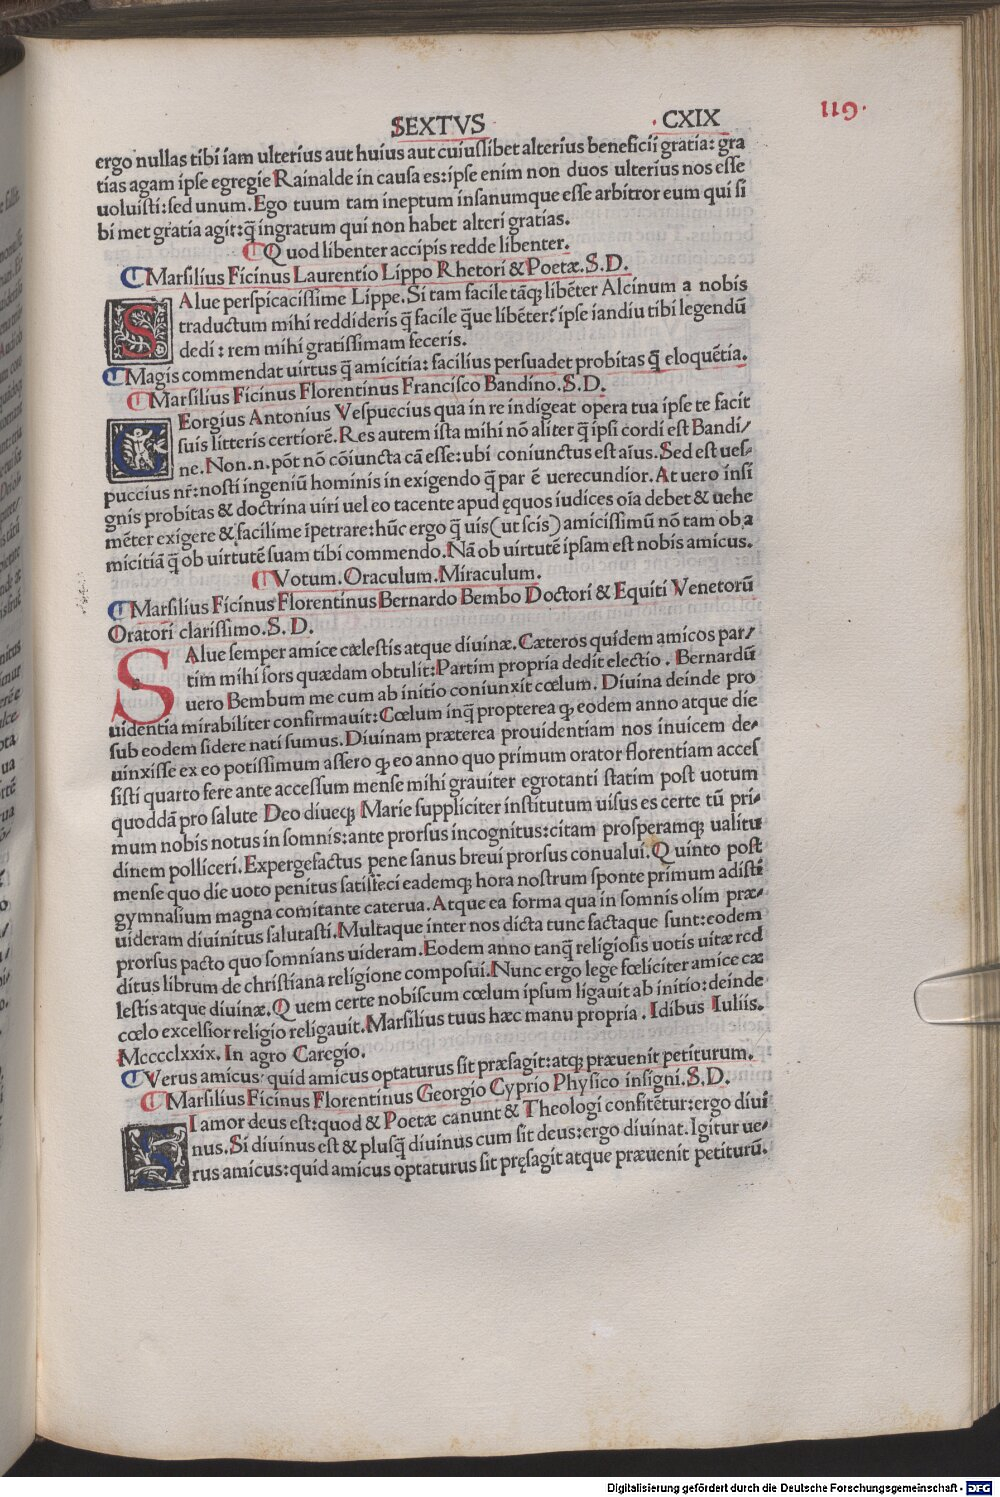 SEXTVS
.CXIX
119.
ergo nullas tibi iam ulterius aut huius aut cuiuslibet alterius beneficii gratia: gra
tias agam ipse egregie Rainalde in causa es: ipse enim non duos ulterius nos esse
uoluisti: sed unum. Ego tuum tam ineptum insanumque esse arbitror eum qui si
bi met gratia agit: q̃ ingratum qui non habet alteri gratias.
Quod libenter accipis redde libenter.
Marsilius Ficinus Laurentio Lippo Rhetori & Poetæ. S. D.
SAlue perspicacissime Lippe. Si tam facile tãq; libẽter Alcinum a nobis
traductum mihi reddideris q̃ facile q̃ue libẽter: ipse iandiu tibi legendũ
dedi: rem mihi gratissimam feceris.
Magis commendat uirtus q̃ amicitia: facilius persuadet probitas q̃ eloquẽtia.
Marsilius Ficinus Florentinus Francisco Bandino. S. D.
GEorgius Antonius Vespuccius qua in re indigeat opera tua ipse te facit
suis litteris certiorẽ. Res autem ista mihi nõ aliter q̃ ipsi cordi est Bandi/
ne. Non .n. põt nõ cõiuncta cã esse: ubi coniunctus est aĩus. Sed est ues-
puccius nr̃: nosti ingeniũ hominis in exigendo q̃ par ẽ uerecundior. At uero insi
gnis probitas & doctrina uiri uel eo tacente apud ęquos iudices oĩa debet & uehe
mẽter exigere & facilime ĩpetrare: hũc ergo q̃ uis (ut scis) amicissimũ nõ tam ob a
micitiã q̃ ob uirtutẽ suam tibi commendo. Nã ob uirtutẽ ipsam est nobis amicus.
Votum. Oraculum. Miraculum.
Marsilius Ficinus Florentinus Bernardo Bembo Doctori & Equiti Venetorũ
Oratori clarissimo. S. D.
SAlue semper amice cælestis atque diuinæ. Cæteros quidem amicos par/
tim mihi sors quædam obtulit: Partim propria dedit electio. Bernardũ
uero Bembum me cum ab initio coniunxit cœlum. Diuina deinde pro
uidentia mirabiliter confirmauit: Cœlum inq̃ propterea ꝙ eodem anno atque die
sub eodem sidere nati sumus. Diuinam præterea prouidentiam nos inuicem de-
uinxisse ex eo potissimum assero ꝙ eo anno quo primum orator florentiam acces
sisti quarto fere ante accessum mense mihi grauiter egrotanti statim post uotum
quoddã pro salute Deo diueq; Marie suppliciter institutum uisus es certe tũ pri-
mum nobis notus in somnis: ante prorsus incognitus: citam prosperamq; ualitu
dinem polliceri. Expergefactus pene sanus breui prorsus conualui. Quinto post
mense quo die uoto penitus satisfeci eademq; hora nostrum sponte primum adisti
gymnasium magna comitante caterua. Atque ea forma qua in somnis olim præ-
uideram diuinitus salutasti. Multaque inter nos dicta tunc factaque sunt: eodem
prorsus pacto quo somnians uideram. Eodem anno tanq̃ religiosis uotis uitæ red
ditus librum de christiana religione composui. Nunc ergo lege fœliciter amice cæ
lestis atque diuinæ. Quem certe nobiscum cœlum ipsum ligauit ab initio: deinde
cœlo excelsior religio religauit. Marsilius tuus hæc manu propria. Idibus Iuliis.
Mcccclxxix. In agro Caregio.
Verus amicus: quid amicus optaturus sit præsagit: atq; præuenit petiturum.
Marsilius Ficinus Florentinus Georgio Cyprio Physico insigni. S. D.
SI amor deus est: quod & Poetæ canunt & Theologi confitẽtur: ergo diui
nus. Si diuinus est & plusq̃ diuinus cum sit deus: ergo diuinat. Igitur ue-
rus amicus: quid amicus optaturus sit pręsagit atque præuenit petiturũ.
Digitalisierung gefördert durch die Deutsche Forschungsgemeinschaft - DFG